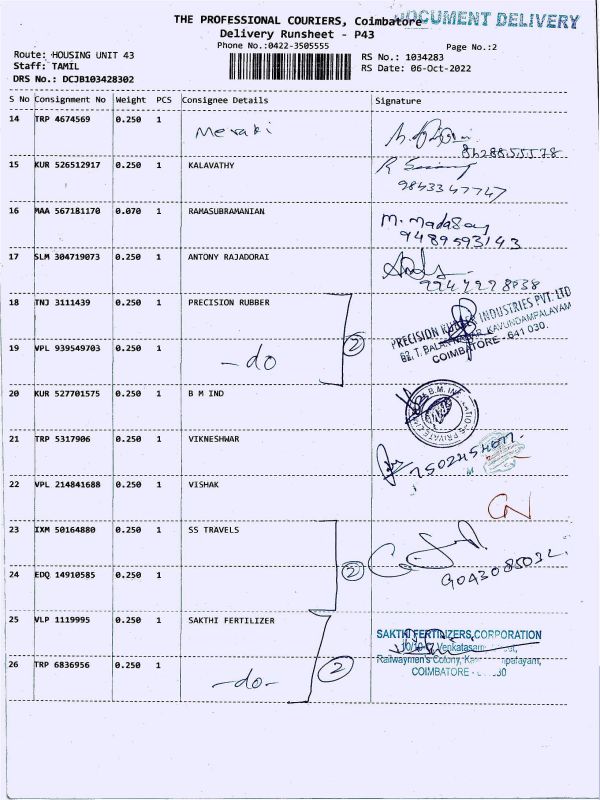 DOCUMENT DELIVERY
THE PROFESSIONAL COURIERS, Coimbatore
Delivery Runsheet - P43
Phone No.:0422-3505555
Page No.:2
Route: HOUSING UNIT 43
RS No.: 1034283
Staff: TAMIL
RS Date: 06-Oct-2022
DRS No.: DCJB103428302
S No Consignment No Weight PCS Consignee Details Signature
14 TRP 4674569 0.250 1 Meraki
15 KUR 526512917 0.250 1 KALAVATHY
9843347747
16 MAA 567181170 0.070 1 RAMASUBRAMANIAN M. Madasay
9489593143
17 SLM 304719073 0.250 1 ANTONY RAJADORAI
18 TNJ 3111439 0.250 1 PRECISION RUBBER
PRECISION INDUSTRIES PVT. LTD
KAVUNDAMPALAYAM
COIMBATORE - 641 030.
19 VPL 939549703 0.250 1 -do 2
20 KUR 527701575 0.250 1 B M IND
21 TRP 5317906 0.250 1 VIKNESHWAR
22 VPL 214841688 0.250 1 VISHAK CN
23 IXM 50164880 0.250 1 SS TRAVELS
9043085032
24 EDQ 14910585 0.250 1 2
25 VLP 1119995 0.250 1 SAKTHI FERTILIZER
SAKTHI FERTILIZERS CORPORATION
Railwaymen's Colony,
COIMBATORE -
26 TRP 6836956 0.250 1 -do- 2